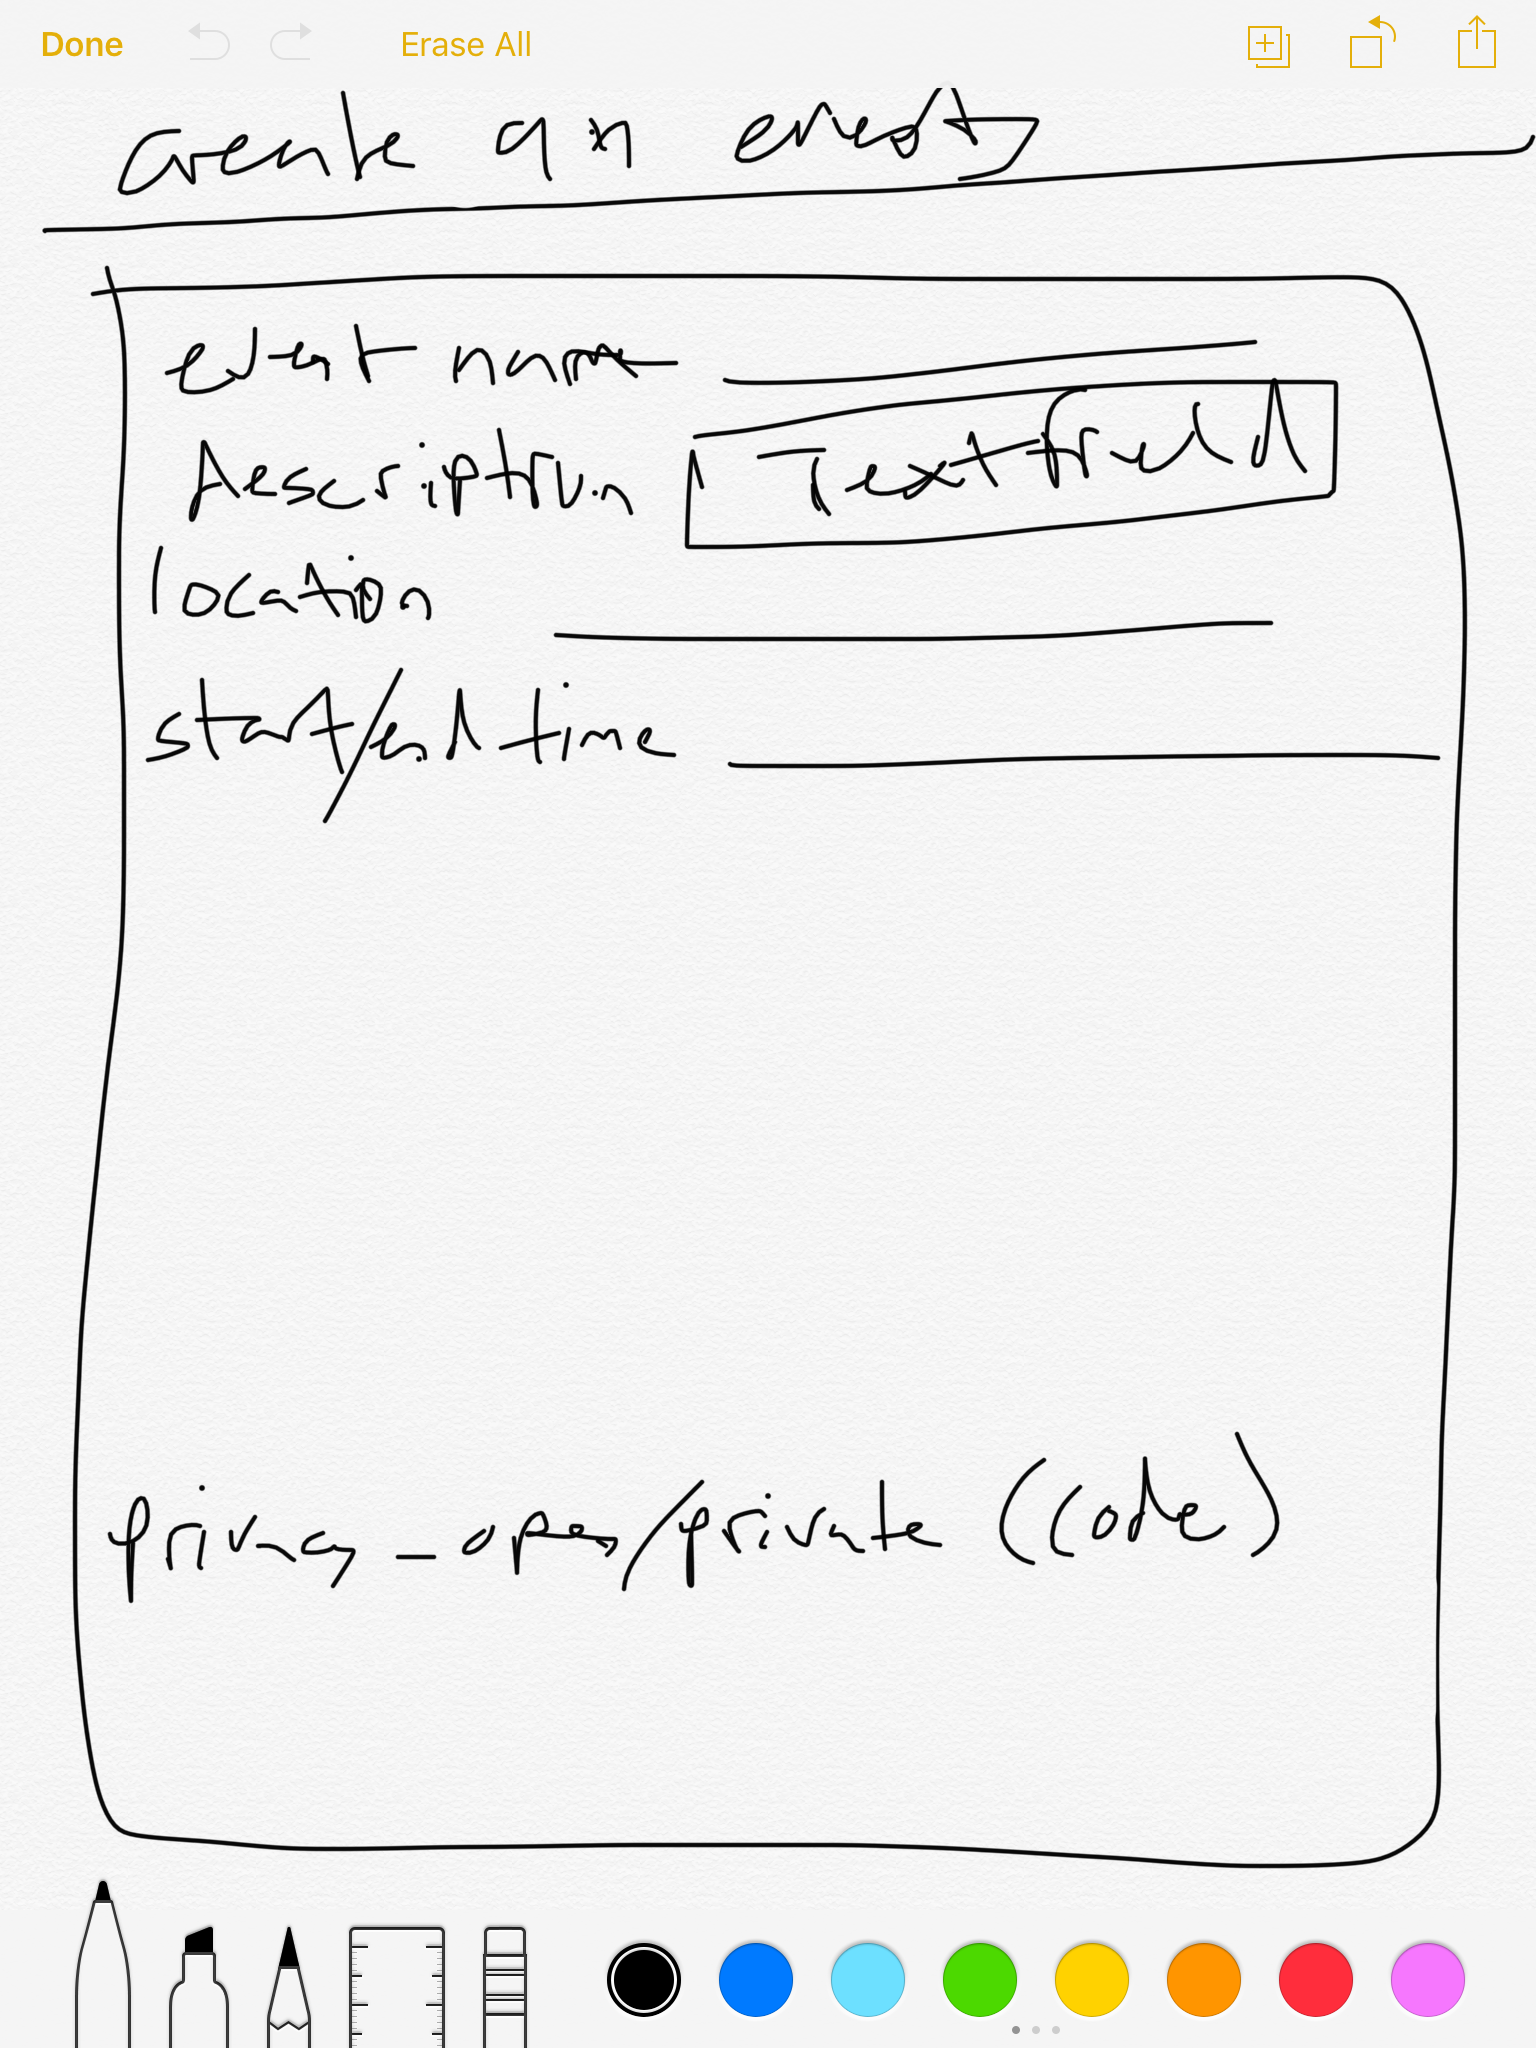 Done Erase All
create an event
event name
description Textfield
location
start/end time
privacy - open/private (code)